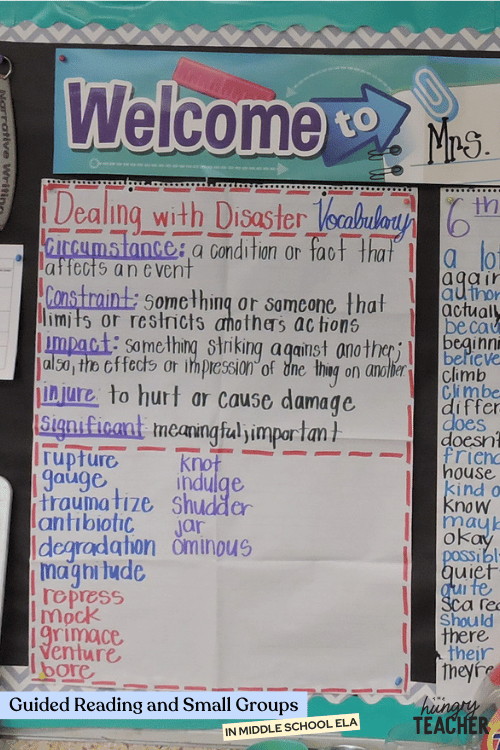 Narrative Writing
Welcome to
Mrs.
Dealing with Disaster Vocabulary
Circumstance: a condition or fact that
affects an event
Constraint: something or someone that
limits or restricts another's actions
impact: something striking against another;
also, the effects or impression of one thing on another
injure to hurt or cause damage
significant meaningful; important
rupture
gauge
traumatize
antibiotic
degradation
magnitude
repress
mock
grimace
venture
bore
knot
indulge
shudder
jar
ominous
6th
a lot
again
author
actually
becau
beginni
believe
climb
climbe
differ
does
doesn't
friend
house
kind o
know
mayb
okay
possibl
quiet
quite
scared
should
there
their
they're
Guided Reading and Small Groups
IN MIDDLE SCHOOL ELA
THE
hungry
TEACHER